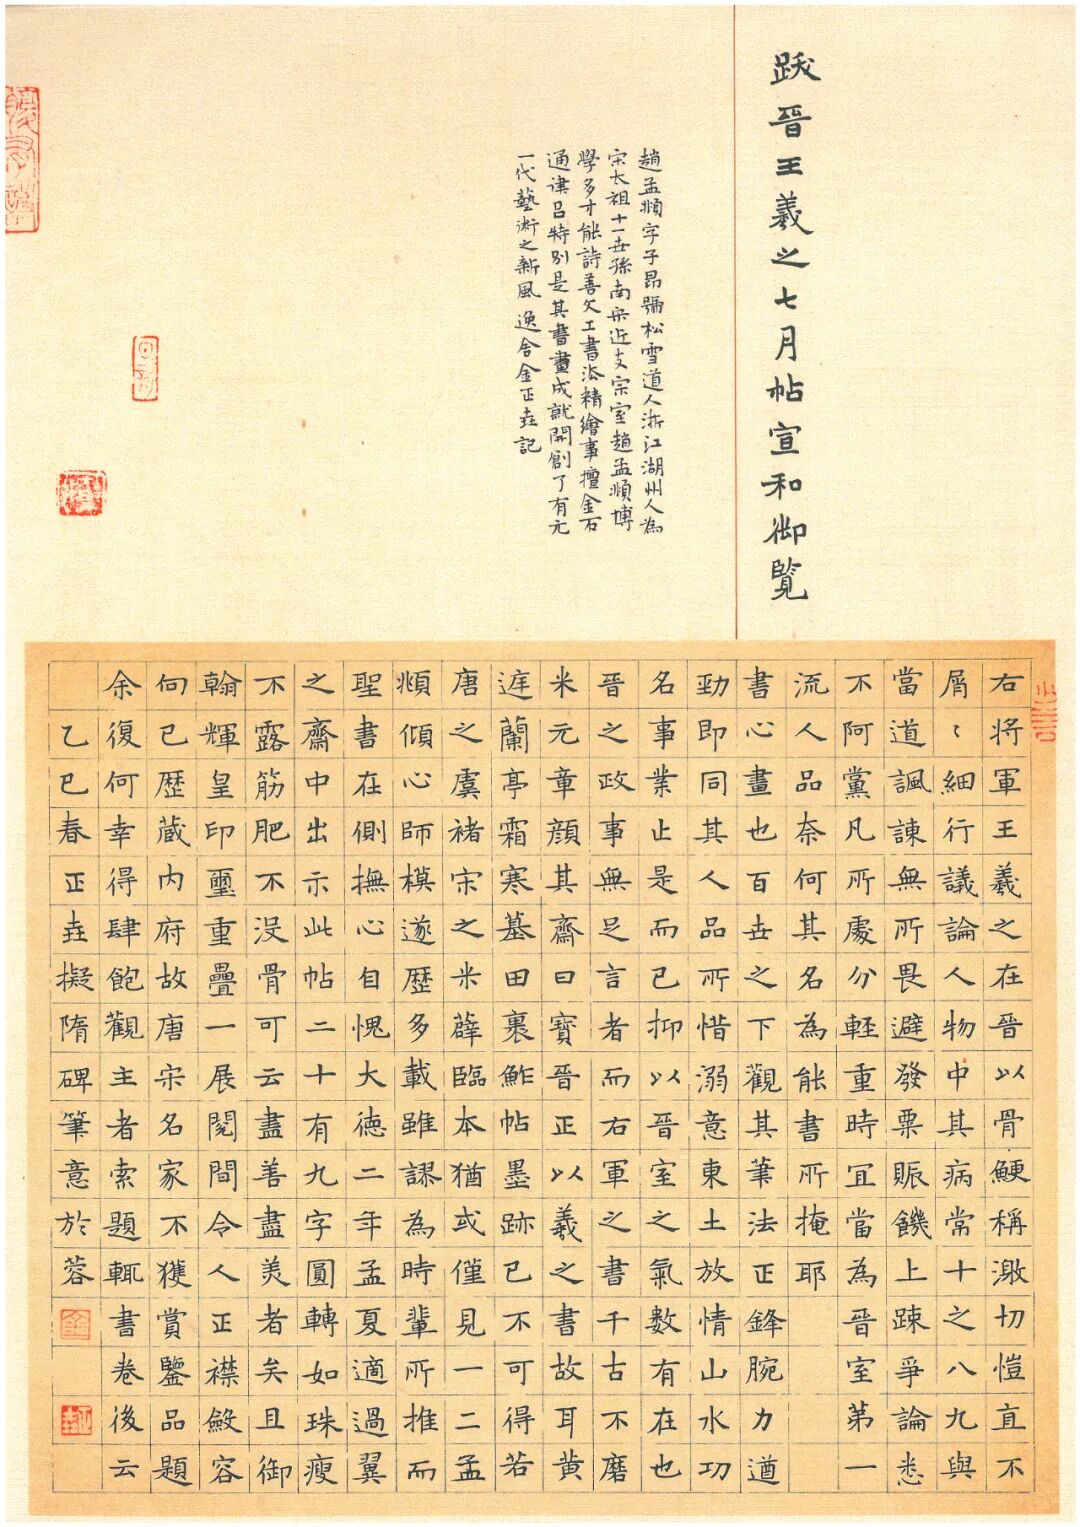 跋晉王羲之七月帖宣和御覧
趙孟頫字子昂號松雪道人浙江湖州人為
宋太祖十一世孫南宋近支宗室趙孟頫博
學多才能詩善文工書法精繪事擅金石
通律吕特别是其書畫成就開創了有元
一代藝術之新風逸舍金正垚記
右將軍王羲之在晉以骨鯁稱激切愷直不
屑々細行議論人物中其病常十之八九與
當道諷諫無所畏避發粟賑饑上踈爭論悉
不阿黨凡所處分輕重時宜當為晉室第一
流人品奈何其名為能書所掩耶
書心畫也百世之下觀其筆法正鋒腕力遒
勁即同其人品所惜溺意東土放情山水功
名事業止是而已抑以晉室之氣数有在也
晉之政事無足言者而右軍之書千古不磨
米元章顔其齋曰寶晉正以羲之書故耳黄
庭蘭亭霜寒墓田裹鮓帖墨跡已不可得若
唐之虞褚宋之米薛臨本猶或僅見一二孟
頫傾心師模遂歷多載雖謬為時輩所推而
聖書在側撫心自愧大徳二年孟夏適過翼
之齋中出示此帖二十有九字圓轉如珠瘦
不露筋肥不没骨可云盡善盡美者矣且御
翰輝皇印璽重疊一展閱間令人正襟斂容
向已歷蔵内府故唐宋名家不獲賞鑒品題
余復何幸得肆飽觀主者索題輒書卷後云
乙巳春正垚擬隋碑筆意於蓉